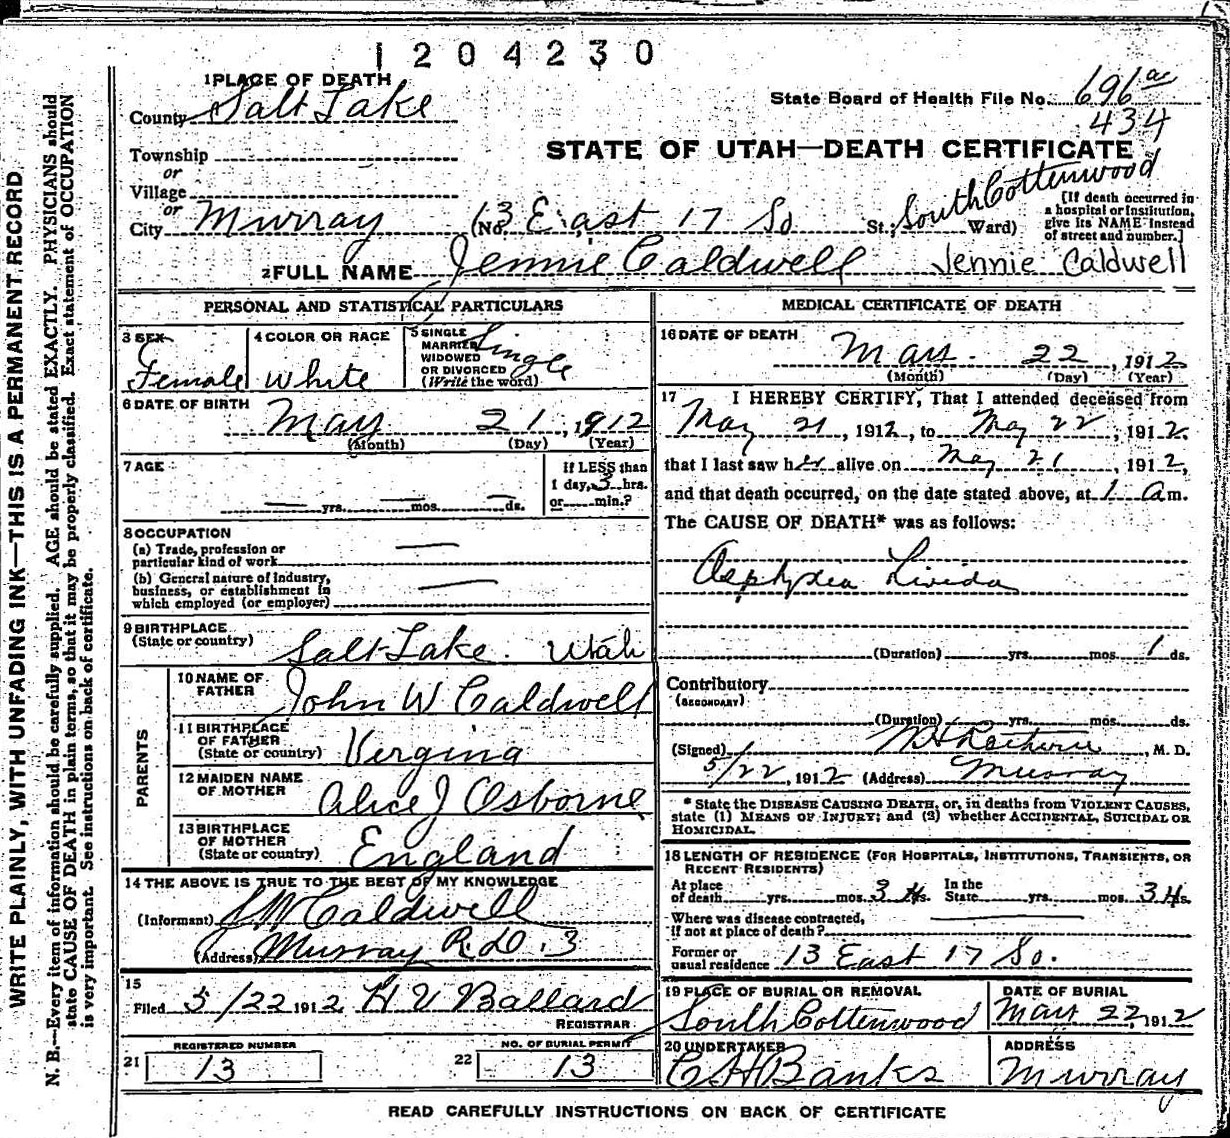 1204230
1 PLACE OF DEATH
County Salt Lake
State Board of Health File No. 696 ac
434
Township
or
Village
or
STATE OF UTAH—DEATH CERTIFICATE
City Murray (No. 13 East 17 So St.; South Cottenwood Ward)
[If death occurred in
a hospital or institution,
give its NAME instead
of street and number.]
2 FULL NAME Jennie Caldwell Jennie Caldwell
PERSONAL AND STATISTICAL PARTICULARS
3 SEX
Female
4 COLOR OR RACE
White
5 SINGLE
MARRIED
WIDOWED
OR DIVORCED
(Write the word)
Single
6 DATE OF BIRTH
May 21, 1912
(Month) (Day) (Year)
7 AGE
— yrs. — mos. — ds.
If LESS than
1 day, 3 hrs.
or min.?
8 OCCUPATION
(a) Trade, profession or
particular kind of work —
(b) General nature of industry,
business, or establishment in
which employed (or employer) —
9 BIRTHPLACE
(State or country) Salt Lake. Utah
PARENTS
10 NAME OF
FATHER John W Caldwell
11 BIRTHPLACE
OF FATHER
(State or country) Vergina
12 MAIDEN NAME
OF MOTHER Alice J Osborne
13 BIRTHPLACE
OF MOTHER
(State or country) England
14 THE ABOVE IS TRUE TO THE BEST OF MY KNOWLEDGE
(Informant) J W Caldwell
(Address) Murray R.D. 3
15
Filed 5/22 1912 H V Ballard
REGISTRAR
REGISTERED NUMBER
21 13
NO. OF BURIAL PERMIT
22 13
MEDICAL CERTIFICATE OF DEATH
16 DATE OF DEATH
May. 22, 1912
(Month) (Day) (Year)
17 I HEREBY CERTIFY, That I attended deceased from
May 21, 1912, to May 22, 1912,
that I last saw her alive on May 21, 1912,
and that death occurred, on the date stated above, at 1 am.
The CAUSE OF DEATH* was as follows:
Asphyxia Livida
(Duration) yrs. mos. 1 ds.
Contributory
(SECONDARY)
(Duration) yrs. mos. ds.
(Signed) , M. D.
5/22, 1912 (Address) Murray
* State the DISEASE CAUSING DEATH, or, in deaths from VIOLENT CAUSES,
state (1) MEANS OF INJURY; and (2) whether ACCIDENTAL, SUICIDAL OR
HOMICIDAL.
18 LENGTH OF RESIDENCE (FOR HOSPITALS, INSTITUTIONS, TRANSIENTS, OR
RECENT RESIDENTS)
At place
of death yrs. mos. 3 Hs.
In the
State yrs. mos. 3 Hs.
Where was disease contracted,
if not at place of death?
Former or
usual residence 13 East 17 So.
19 PLACE OF BURIAL OR REMOVAL
South Cottenwood
DATE OF BURIAL
May 22, 1912
20 UNDERTAKER
C H Banks
ADDRESS
Murray
READ CAREFULLY INSTRUCTIONS ON BACK OF CERTIFICATE
WRITE PLAINLY, WITH UNFADING INK—THIS IS A PERMANENT RECORD
N. B.—Every item of information should be carefully supplied. AGE should be stated EXACTLY. PHYSICIANS should
state CAUSE OF DEATH in plain terms, so that it may be properly classified. Exact statement of OCCUPATION
is very important. See instructions on back of certificate.